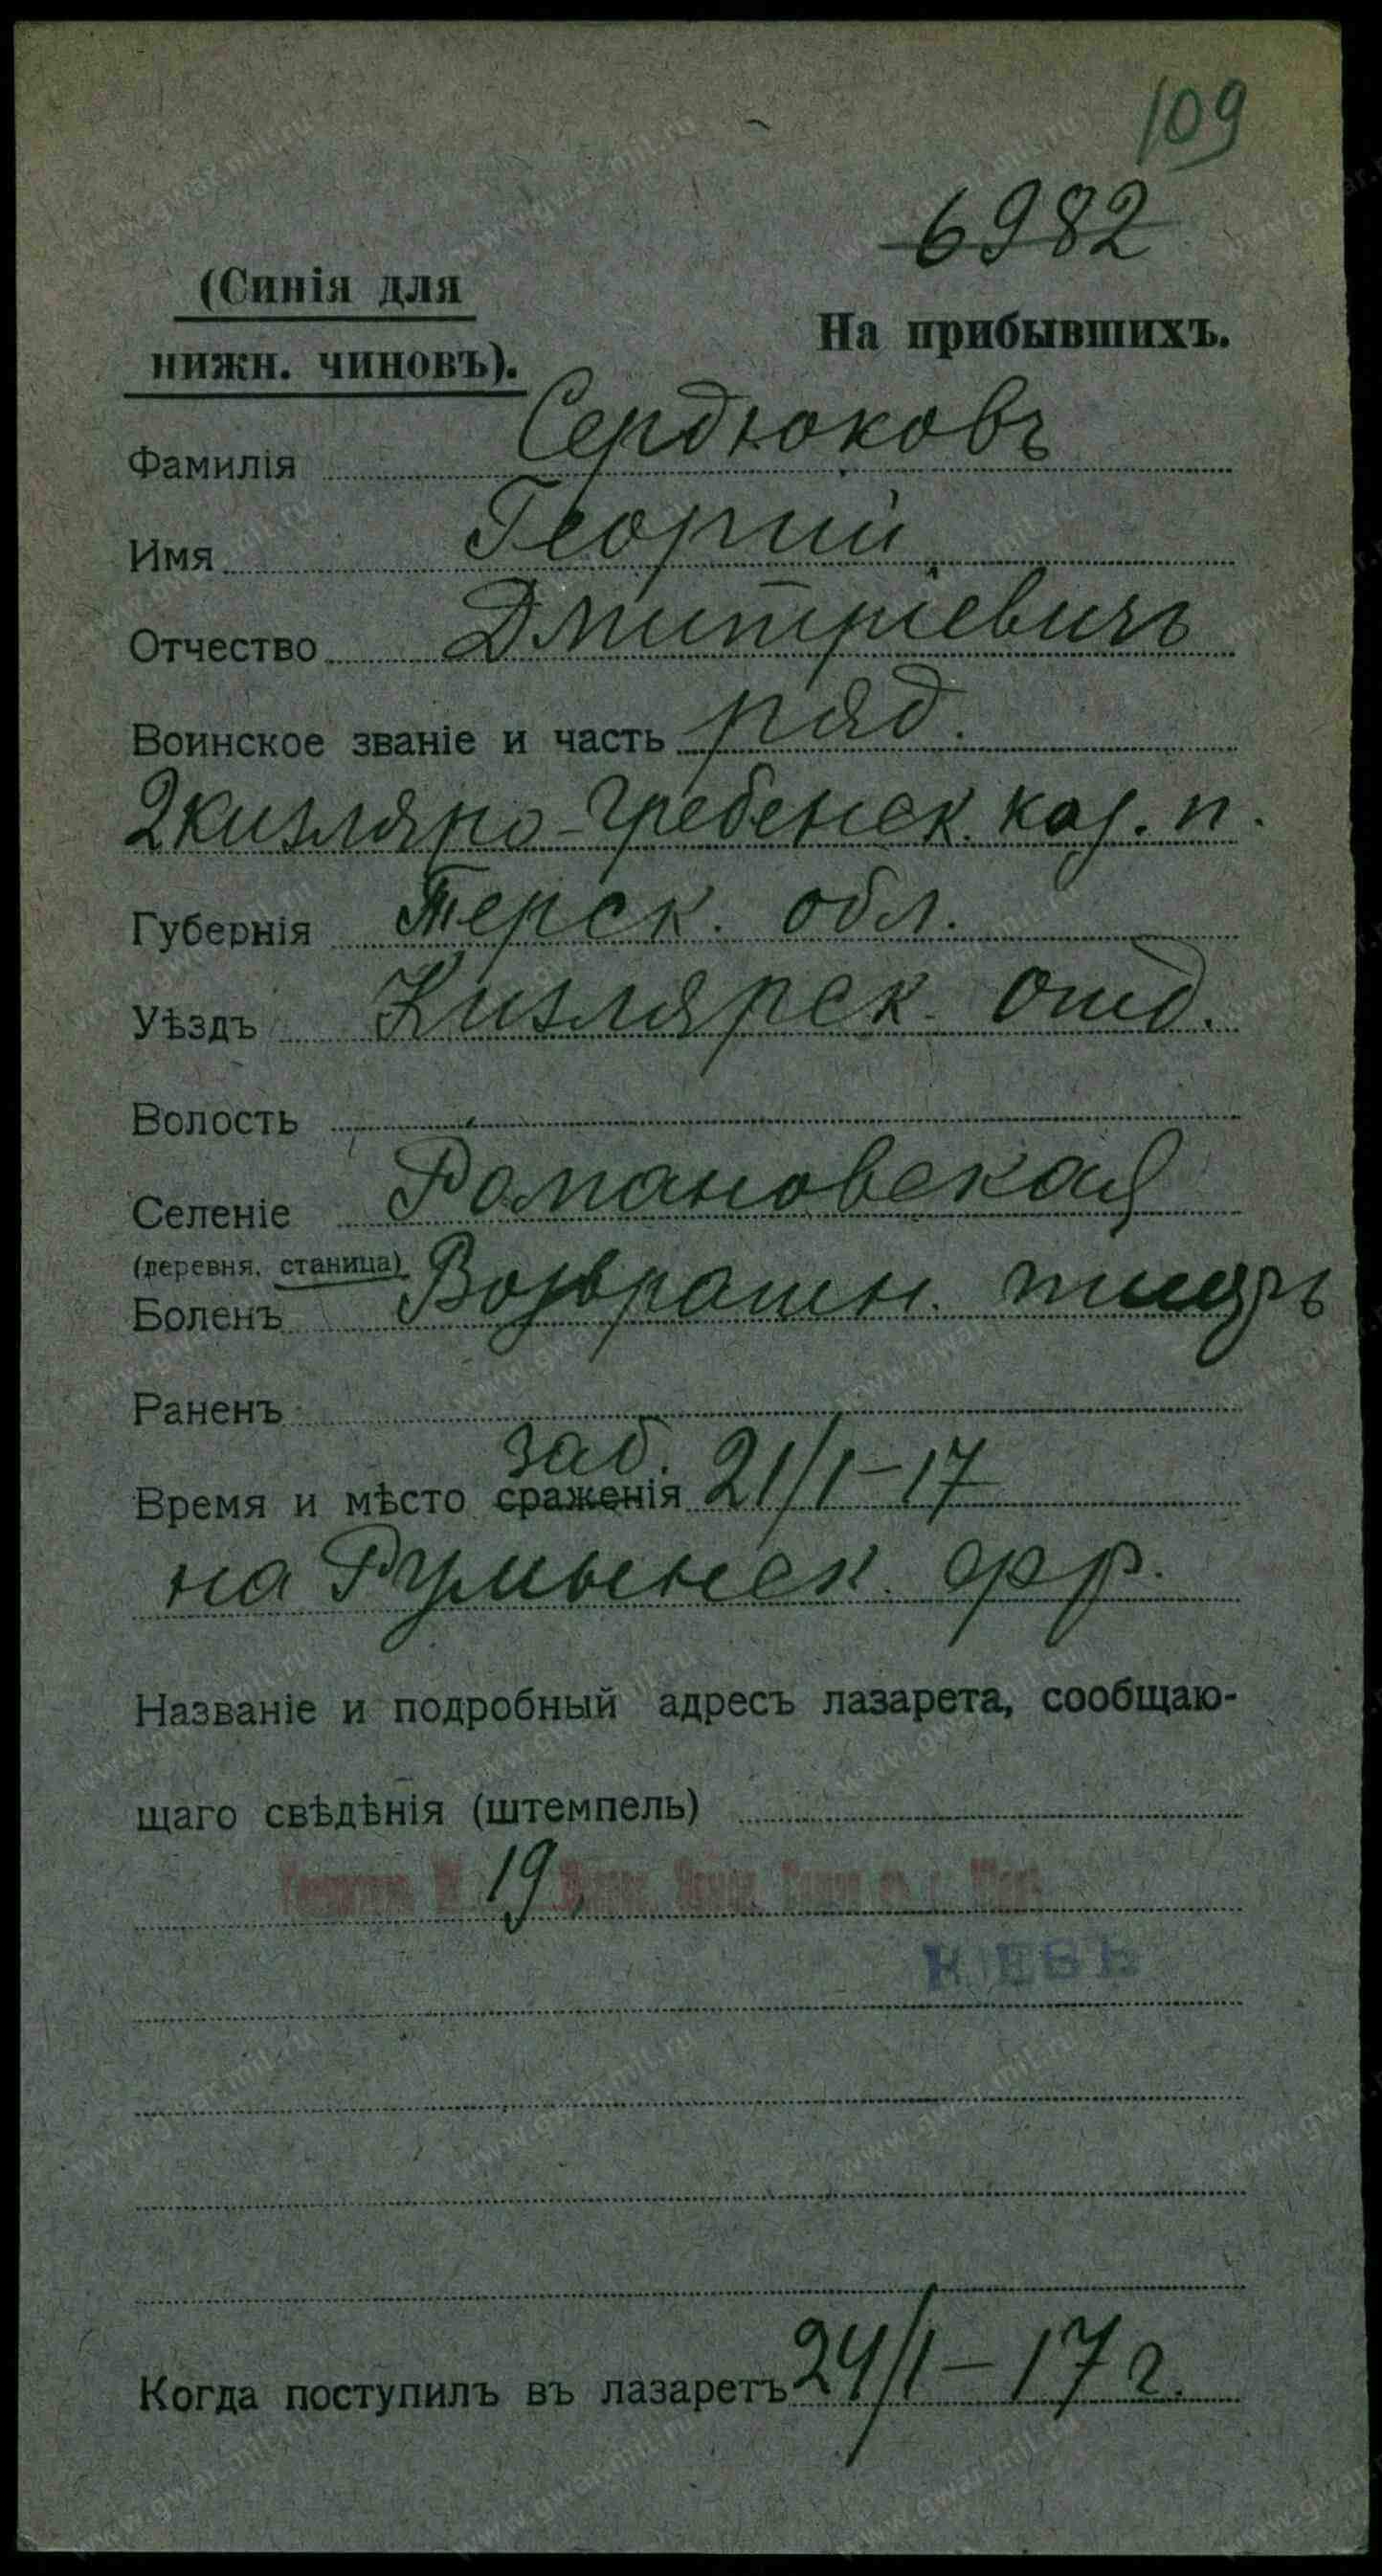 109
6982
(Синія для
нижн. чиновъ).
На прибывшихъ.
Фамилія Сердюковъ
Имя Георгий
Отчество Дмитріевичъ
Воинское званіе и часть ряд.
2 кизляро-гребенск. каз. п.
Губернія Терск. обл.
Уѣздъ Кизлярск. отд.
Волость
Селеніе Романовская
(деревня, станица)
Боленъ Возвратн. тифъ
Раненъ
заб.
Время и мѣсто сраженія 21/I-17
на Румынск. фр.
Названіе и подробный адресъ лазарета, сообщаю-
щаго свѣдѣнія (штемпель)
19
КІЕВЪ
Когда поступилъ въ лазаретъ 24/I-17 г.